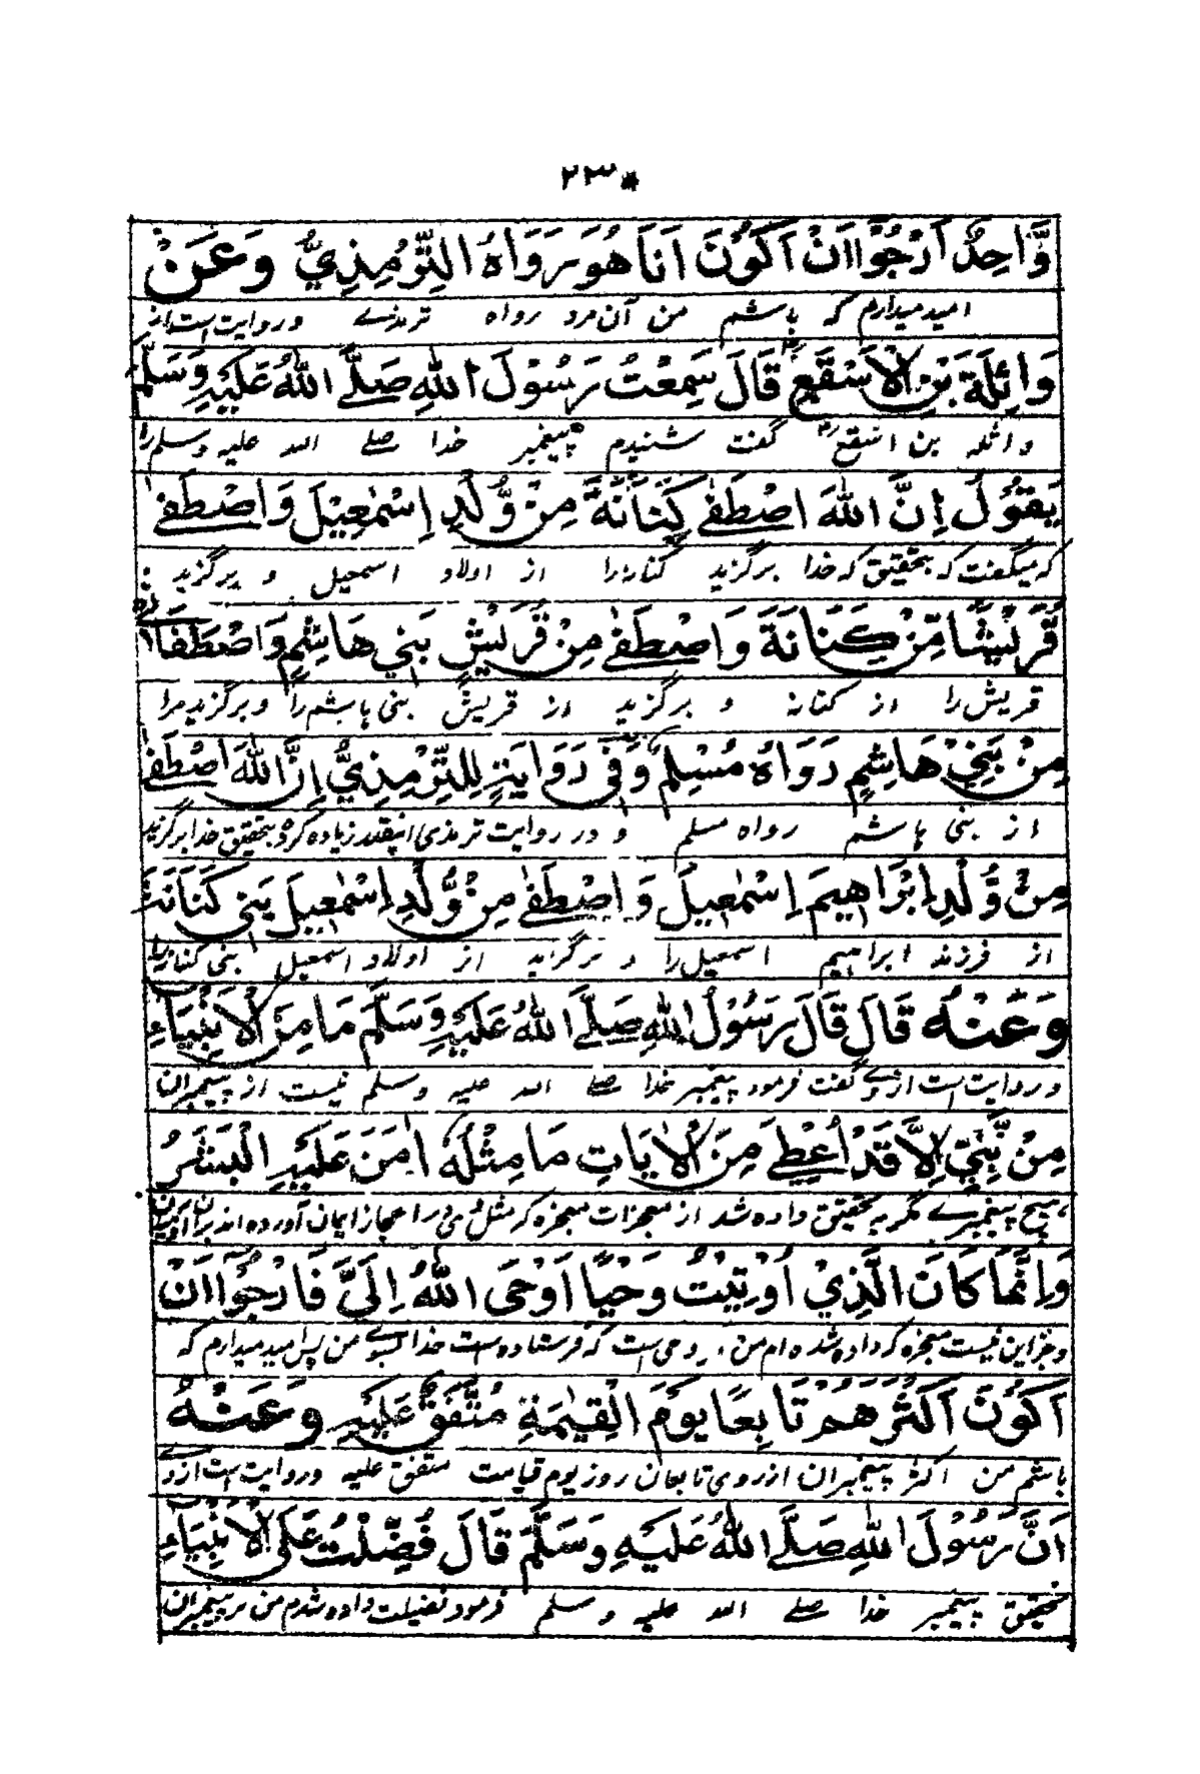 *۲۳
وَّاحِدٌ اَرْجُوْا اَنْ اَكُوْنَ اَنَا هُوَ رَوَاهُ التِّرْمِذِيُّ وَعَنْ
امید میدارم که باشم من آن مرد رواه ترمذی و روایت است از
وَائِلَةَ بْنِ الْاَسْقَعِ رض قَالَ سَمِعْتُ رَسُوْلَ اللهِ صَلَّى اللهُ عَلَيْهِ وَسَلَّمَ
واثله بن اسقع رض گفت شنیدم پیغمبر خدا صلے الله علیه وسلم را
يَقُوْلُ اِنَّ اللهَ اصْطَفٰى كِنَانَةَ مِنْ وُّلْدِ اِسْمٰعِيْلَ وَاصْطَفٰى
که میگفت که بتحقیق که خدا برگزید کنانه را از اولاد اسمعیل و برگزید
قُرَيْشًا مِّنْ كِنَانَةَ وَاصْطَفٰى مِنْ قُرَيْشٍ بَنِي هَاشِمٍ وَاصْطَفَانِي
قریش را از کنانه و برگزید از قریش بنی هاشم را و برگزید مرا
مِنْ بَنِيْ هَاشِمٍ رَوَاهُ مُسْلِم وَفِي رَوَايَةٍ لِلتِّرْمِذِيُّ اِنَّ اللهَ اصْطَفٰى
از بنی هاشم رواه مسلم و در روایت ترمذی اینقدر زیاده کرده بتحقیق خدا برگزید
مِنْ وُّلْدِ اِبْرَاهِيمَ اِسْمٰعِيلَ وَاصْطَفٰى مِنْ وُّلْدِ اِسْمٰعِيلَ بَنِي كَنَانَةَ
از فرزند ابراهیم اسمعیل را و برگزید از اولاد اسمعیل بنی کنانه را
وَعَنْهُ قَالَ قَالَ رَسُوْلُ اللهِ صَلَّى اللهُ عَلَيْهِ وَسَلَّمَ مَا مِنَ الْاَنْبِيَاءِ
و روایت است از وی گفت فرمود پیغمبر خدا صلے الله علیه وسلم نیست از پیغمبران
مِنْ نَّبِيٍّ اِلَّا قَدْ اُعْطِيَ مِنَ الْاٰيَاتِ مَا مِثْلُهُ اٰمَنَ عَلَيْهِ الْبَشَرُ
هیچ پیغمبرے مگر بتحقیق داده شد از معجزات معجزه که مثل وی را اعجاز ایمان آورده اند بران
وَاِنَّمَا كَانَ الَّذِيْ اُوْتِيْتُ وَحْيًا اَوْحَى اللهُ اِلَيَّ فَارْجُوْا اَنْ
و جز این نیست معجزه که داده شده ام من وحی است که فرستاده است خدا بسوے من پس امید میدارم که
اَكُوْنَ اَكْثَرَهُمْ تَابِعًا يَوْمَ الْقِيٰمَةِ مُتَّفَقٌ عَلَيْهِ وَعَنْهُ
باشم من اکثر پیغمبران از روی تابعان روز یوم قیامت متفق علیه و روایت است از وے
اَنَّ رَسُوْلَ اللهِ صَلَّى اللهُ عَلَيْهِ وَسَلَّمَ قَالَ فُضِّلْتُ عَلَى الْاَنْبِيَاءِ
تحقیق پیغمبر خدا صلے الله علیه وسلم فرمود فضیلت داده شدم من بر پیغمبران